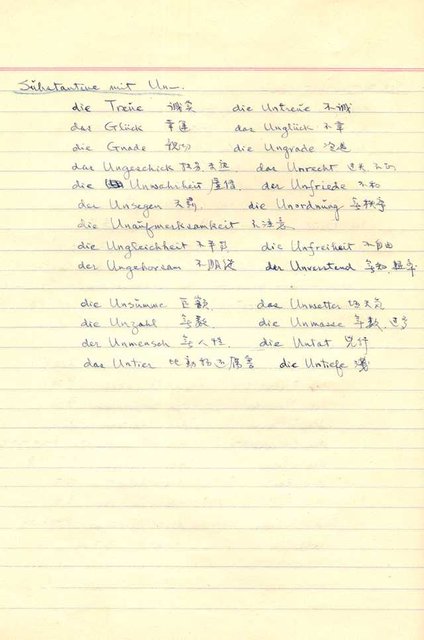 Substantive mit Un—.
die Treue 誠實 die Untreue 不誠
das Glück 幸運 das Unglück 不幸
die Gnade die Ungnade
das Ungeschick das Unrecht
die Unwahrheit 虛偽 der Unfriede 不和
der Unsegen die Unordnung 無秩序
die Unaufmerksamkeit 不注意
die Ungleichheit 不平等 die Unfreiheit 不自由
der Ungehorsam 不順從 der Unverstand
die Unsumme 巨款 das Unwetter 坏天氣
die Unzahl 無數 die Unmasse 無數
der Unmensch 無人性 die Untat 兇行
das Untier 比動物还厲害 die Untiefe